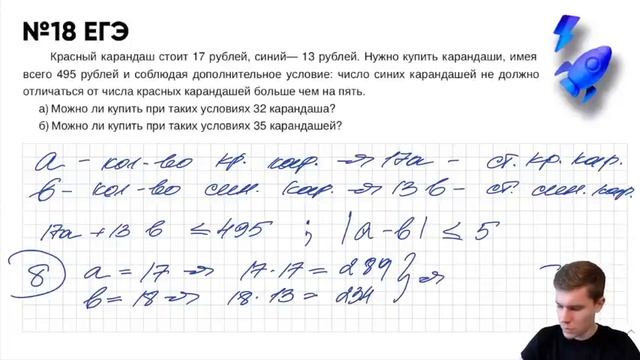 №18 ЕГЭ
Красный карандаш стоит 17 рублей, синий— 13 рублей. Нужно купить карандаши, имея
всего 495 рублей и соблюдая дополнительное условие: число синих карандашей не должно
отличаться от числа красных карандашей больше чем на пять.
а) Можно ли купить при таких условиях 32 карандаша?
б) Можно ли купить при таких условиях 35 карандашей?
a – кол-во кр. кар. → 17a – ст. кр. кар.
b – кол-во син. кар → 13 b – ст. син. кар.
17a + 13 b ≤ 495 ; |a-b| ≤ 5
б a = 17 → 17·17 = 289 } →
b = 18 → 18·13 = 234